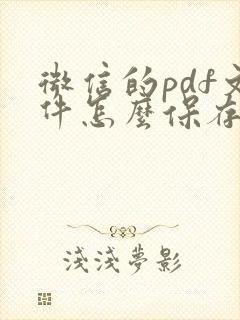 微信的pdf文
件怎麼保存
淺淺夢影